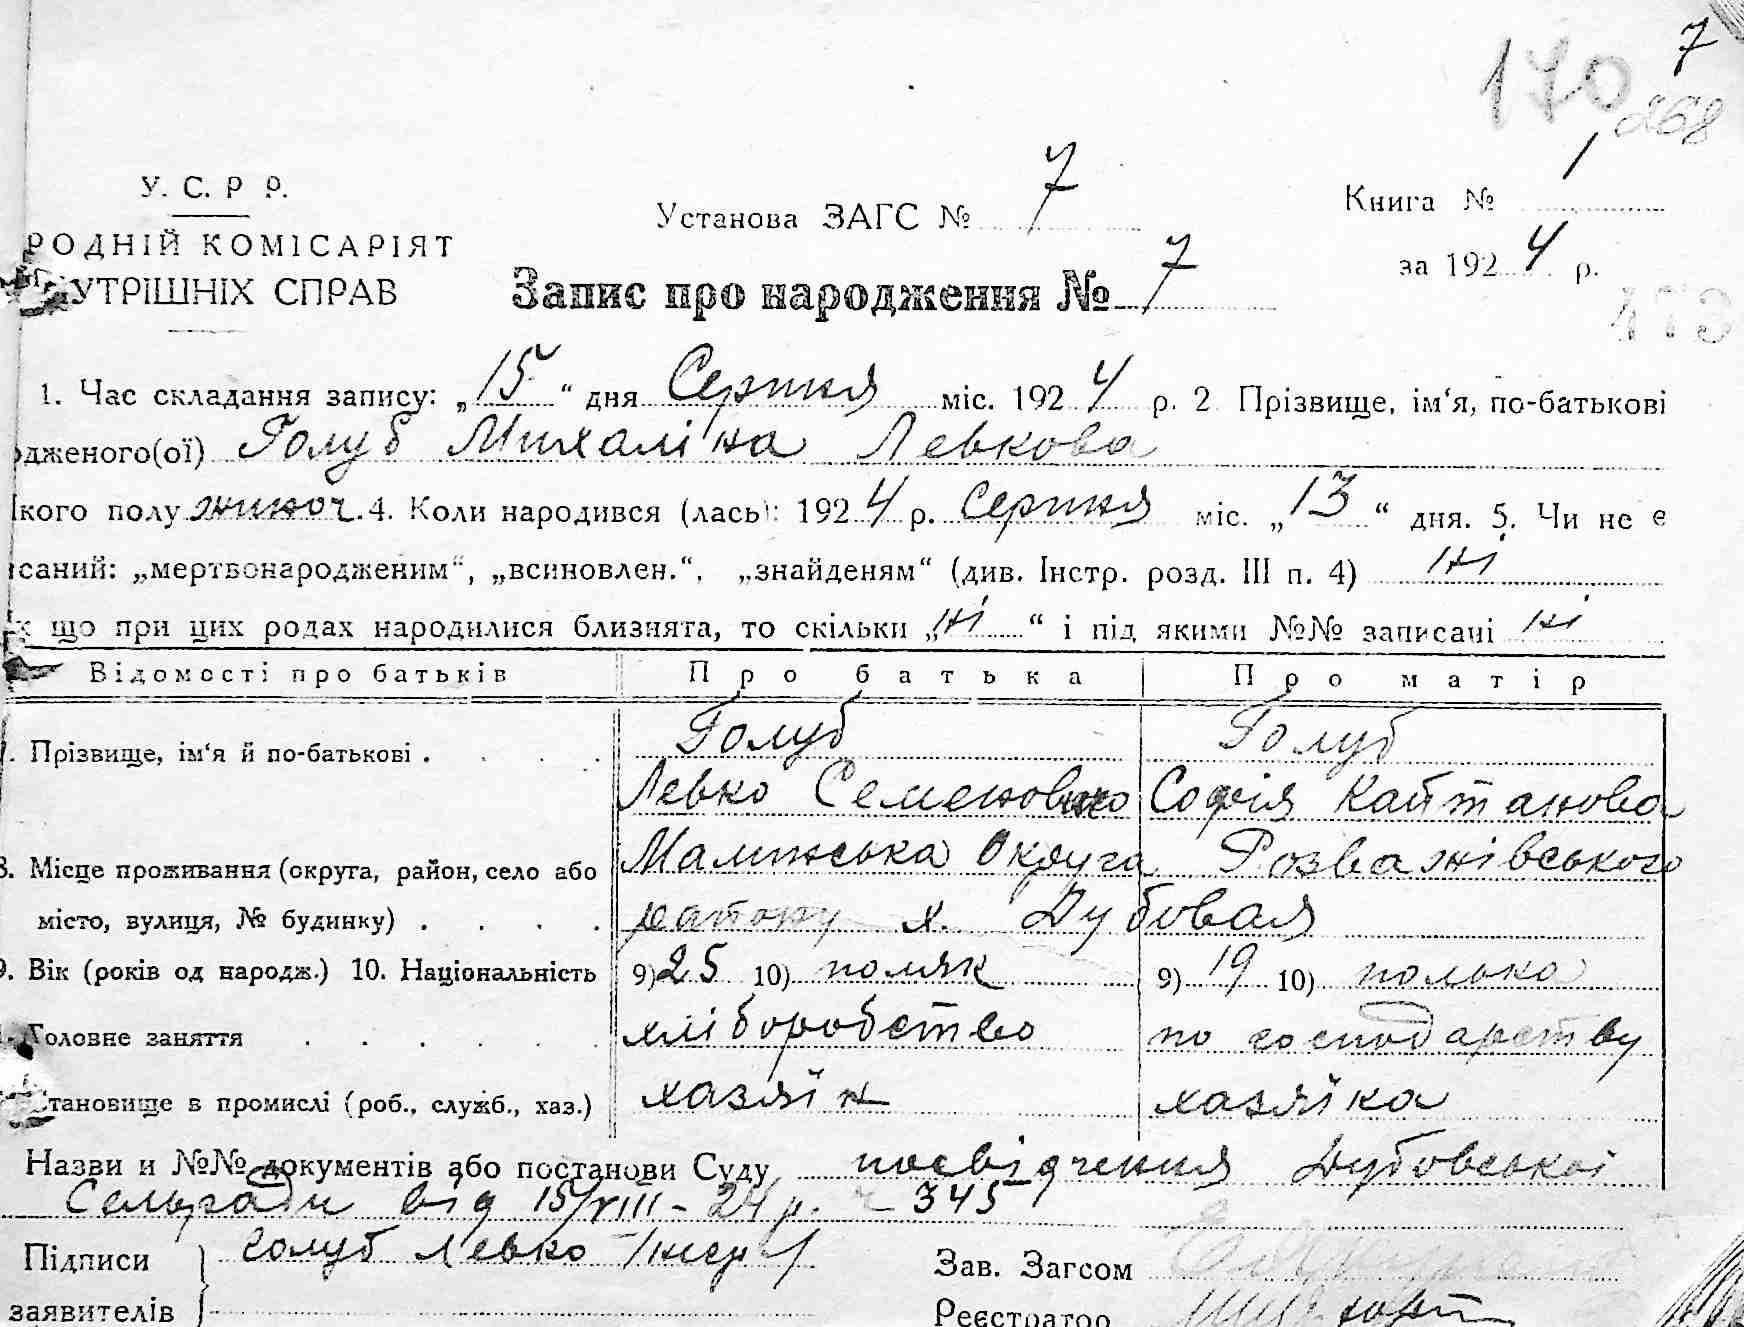 7
170
268
У. С. Р Р.
Установа ЗАГС № 7
Книга № 1
РОДНІЙ КОМІСАРІЯТ
за 1924 р.
УТРІШНІХ СПРАВ
Запис про народження № 7
473
1. Час складання запису: „15“ дня Серпня міс. 1924 р. 2 Прізвище, ім‘я, по-батькові
дженого(ої) Голуб Михаліна Левкова
кого полу жиноч. 4. Коли народився (лась): 1924 р. Серпня міс. „13“ дня. 5. Чи не є
саний: „мертвонародженим“, „всиновлен.“, „знайденям“ (див. Інстр. розд. III п. 4) ні
що при цих родах народилися близнята, то скільки „ні“ і під якими №№ записані ні
Відомості про батьків Про батька Про матір
7. Прізвище, ім‘я й по-батькові . Голуб Голуб
Левко Семенович Софія Кайтанова
8. Місце проживання (округа, район, село або Малинська Округа Розважівського
місто, вулиця, № будинку) . . . . району х. Дубовая
9. Вік (років од народж.) 10. Національність 9) 25 10) поляк 9) 19 10) полька
Головне заняття . . . . . . хліборобство по господарству
тановище в промислі (роб., служб., хаз.) хазяїн хазяїка
Назви и №№ документів або постанови Суду посвідчення Дубовської
Сельради від 15/VIII – 24 р. 345
Підписи Голуб Левко
Зав. Загсом
заявителів
Реєстратор